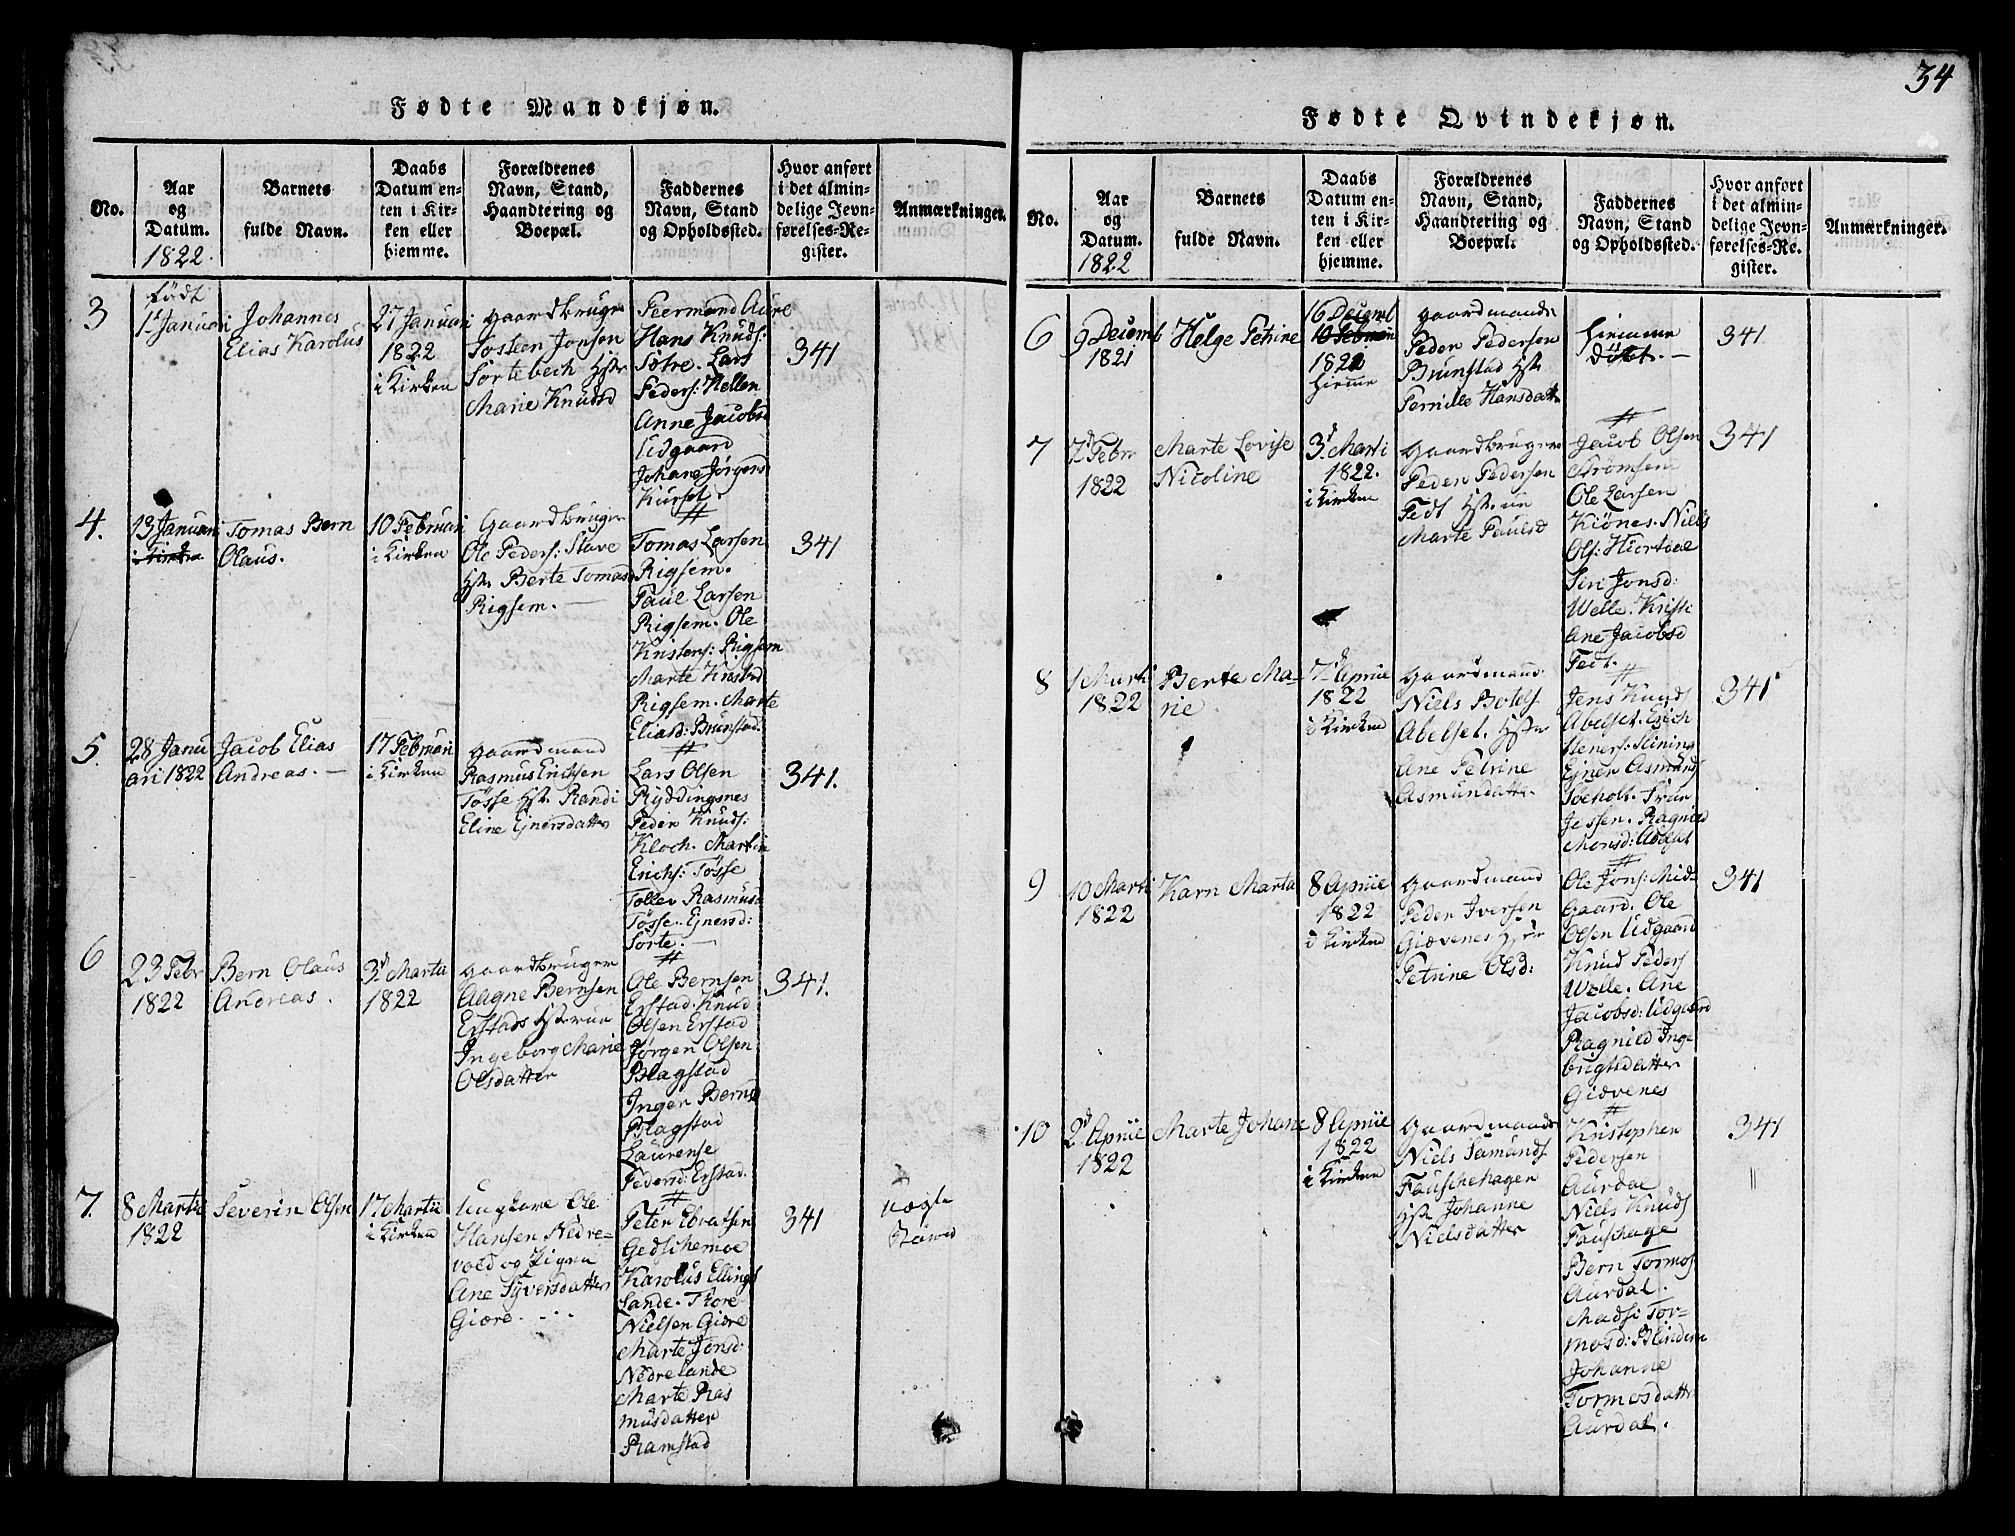 34
Fødte Mandkjøn.
No.
Aar
og
Datum.
1822.
Barnets
fulde Navn.
Daabs
Datum en-
ten i Kir-
ken eller
hjemme.
Forældrenes
Navn, Stand,
Haandtering og
Boepæl.
Faddernes
Navn, Stand
og Opholdssted.
Hvor anført
i det almin-
delige Jevn-
førelses-Re-
gister.
Anmærkninger.
3
födt
1st Januari
Johannes
Elias Karolus
27 Januari
1822
i Kirken
gaardbruger
Sosteen Jonsen
Sortebech Hstr
Marie Knudsd
Peermand Aure
Hans Knuds:
Søtre. Lars
Peders: Hellen
Anne Jacobsd
Udgaard
Johane Jørgens
Kurset.
341
4.
13 Januari
i Kirken
Tomas Bern
Olaus.
10 Februari
i Kirken
Gaardbruger
Ole Peders: Slave
Hstr Berte Tomasd
Rigsem.
Tomas Larsen
Rigsem.
Paul Larsen
Rigsem. Ole
Kristens: Rigsem
Marte Knutsd
Rigsem. Marte
Eliasd: Brunstad.
341
5.
28 Janu
ari 1822
Jacob Elias
Andreas.
17 Februari
i Kirken
gaardmand
Rasmus Erichsen
Tösse Hstr. Randi
Eline Ejnersdatter
Lars Olsen
Ryddingsnes
Peder Knuds:
Kloch. Martin
Erichs: Tösse
Toller Rasmus
Tösse. Ejnersd:
Sorte.
341.
6
23 Febr
1822
Bern Olaus
Andreas.
3d Marta
1822
gaardbruger
Aagne Bernsen
Erstad Hstrue
Ingeborg Marie
Olsdatter
Ole Bernsen
Erstad. Knud
Olsen Erstad
Jørgen Olsen
Blagstad
Inger Bernsd
Blagstad
Laurense
Pedersd: Erstad.
341.
7.
8 Martii
1822
Severin Olsen
17 Martii
i Kirken
Ungkare Ole
Hansen Nedre-
vold og Pigen
Ane Syversdatter
Giære.
Peter Ebratsen
Gedschemoe
Karolus Ellings
Lande. Thore
Nielsen Giære
Marte Jonsd:
Nedrelande
Marte Ras
musdatter
Ramstad
341
uægte
Barn
Fødte Qvindekjøn.
No.
Aar
og
Datum.
1822
Barnets
fulde Navn.
Daabs
Datum en-
ten i Kir-
ken eller
hjemme.
Forældrenes
Navn, Stand,
Haandtering og
Boepæl.
Faddernes
Navn, Stand
og Opholdssted.
Hvor anført
i det almin-
delige Jevn-
førelses-Re-
gister.
Anmærkninger.
6
9 Decemb
1821
Helge Petrine
16 Decemb
10 Februari
1821
hiemme
gaardmand
Peder Pedersen
Brunstad Hstr
Pernille Hansdatt
hiemme
döbt.
341
7
7d Febr
1822
Marte Lovise
Nicoline
3d Marti
1822.
i Kirken
gaardbruger
Peder Pedersen
Fedt Hstrue
Marte Paulsd
Jacob Olsen
Strömsem
Ole Larsen
Kiönes. Niels
Ols: Hiortdal
Siri Jonsd:
Welle. Kristi
Ane Jacobsd
Fedt.
341
8
1 Marti
1822
Berte Ma-
rie
7d Aprile
1822
i Kirken
gaardmand
Niels Botels
Abelset. Hstr
Ane Petrine
Asmundatter.
Jens Knuds
Abelset. Erich
Steners: Slining
Ejner Asmunds
Soeholt. Iver
Jessen. Ragnild
Monsd: Abelset
341
9
10 Marti
1822
Karn Marta
8 Aprile
1822
i Kirken
gaardmand
Peder Iversen
Giævenes Hstr
Petrine Olsd:
Ole Jons: Mid-
Gaard. Ole
Olsen Udgaard
Knud Peders
Welle. Ane
Jacobsd: Udgaard
Ragnild Inge
brigtsdatter
Giævenes
341
10
2d Aprile
1822
Marte Johane
8 Aprile
1822
i Kirken
gaardmand
Niels Samunds
Fauschehagen
Hstr Johanne
Nielsdatter
Kristopher
Pedersen
Aurdal
Niels Knuds
Fauskhage
Bern Tormos
Aurdal.
Mads: Tor-
mosd: Blindem
Johanne
Tormosdatter
Aurdal.
341
"